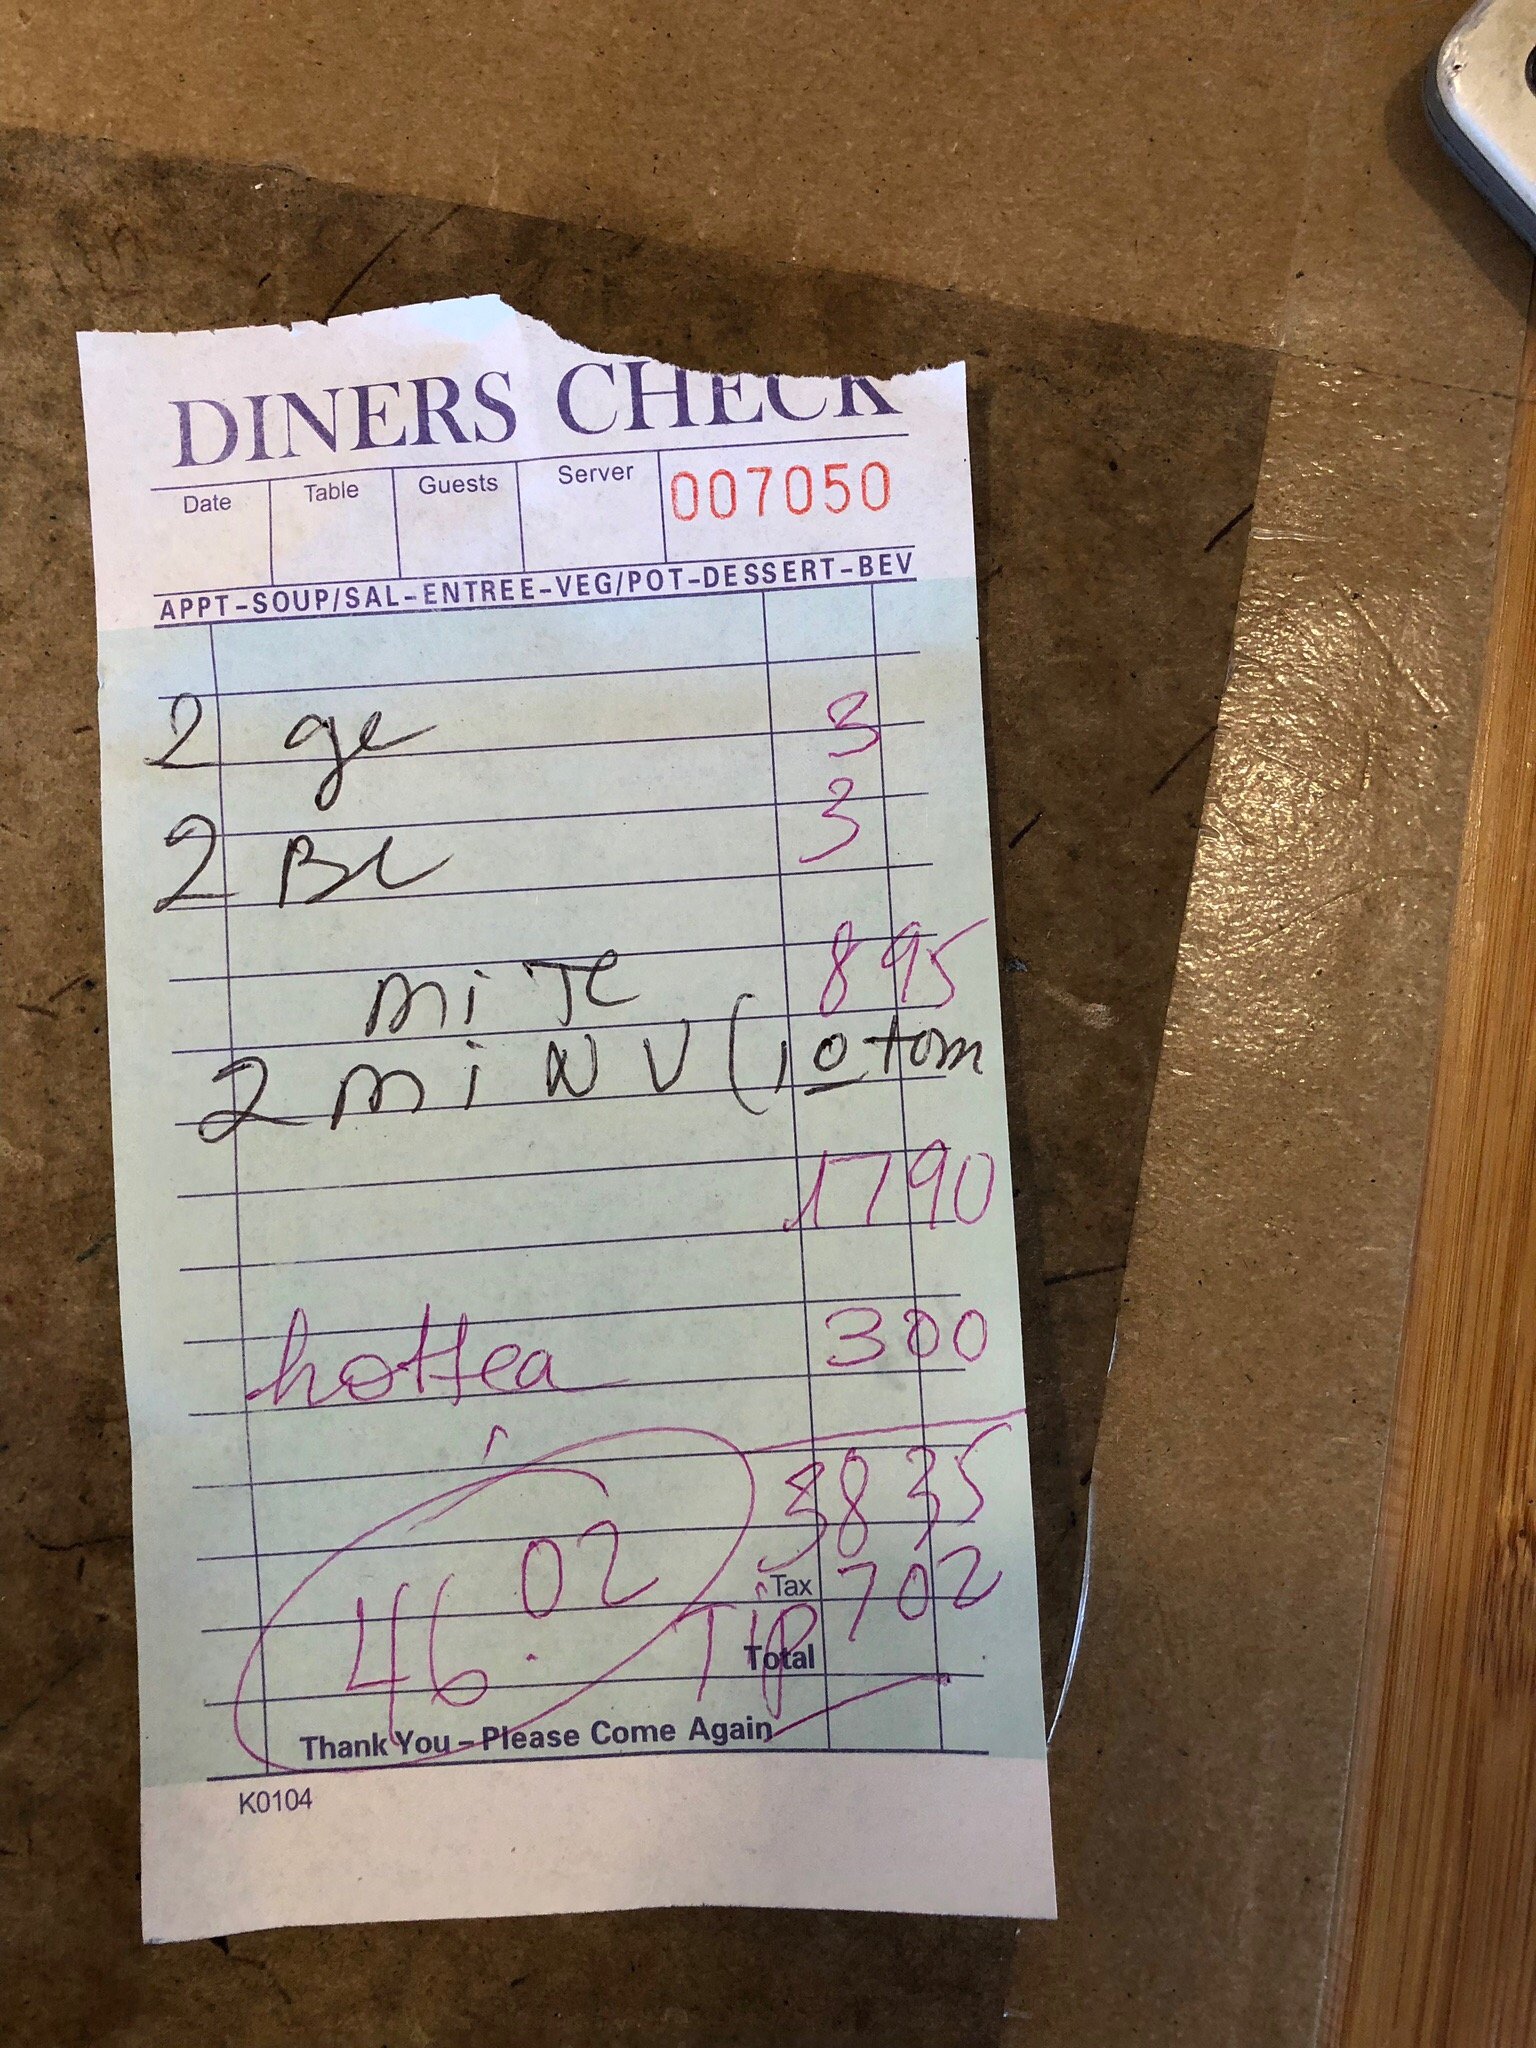 DINERS CHECK
Date Table Guests Server 007050
APPT-SOUP/SAL-ENTREE-VEG/POT-DESSERT-BEV
2 ge 3
2 BL 3
mi Te 895
2 mi N V (10 tom
1790
hot tea 300
3835
Tax 702
46.02 TiP
Total
Thank You – Please Come Again
K0104